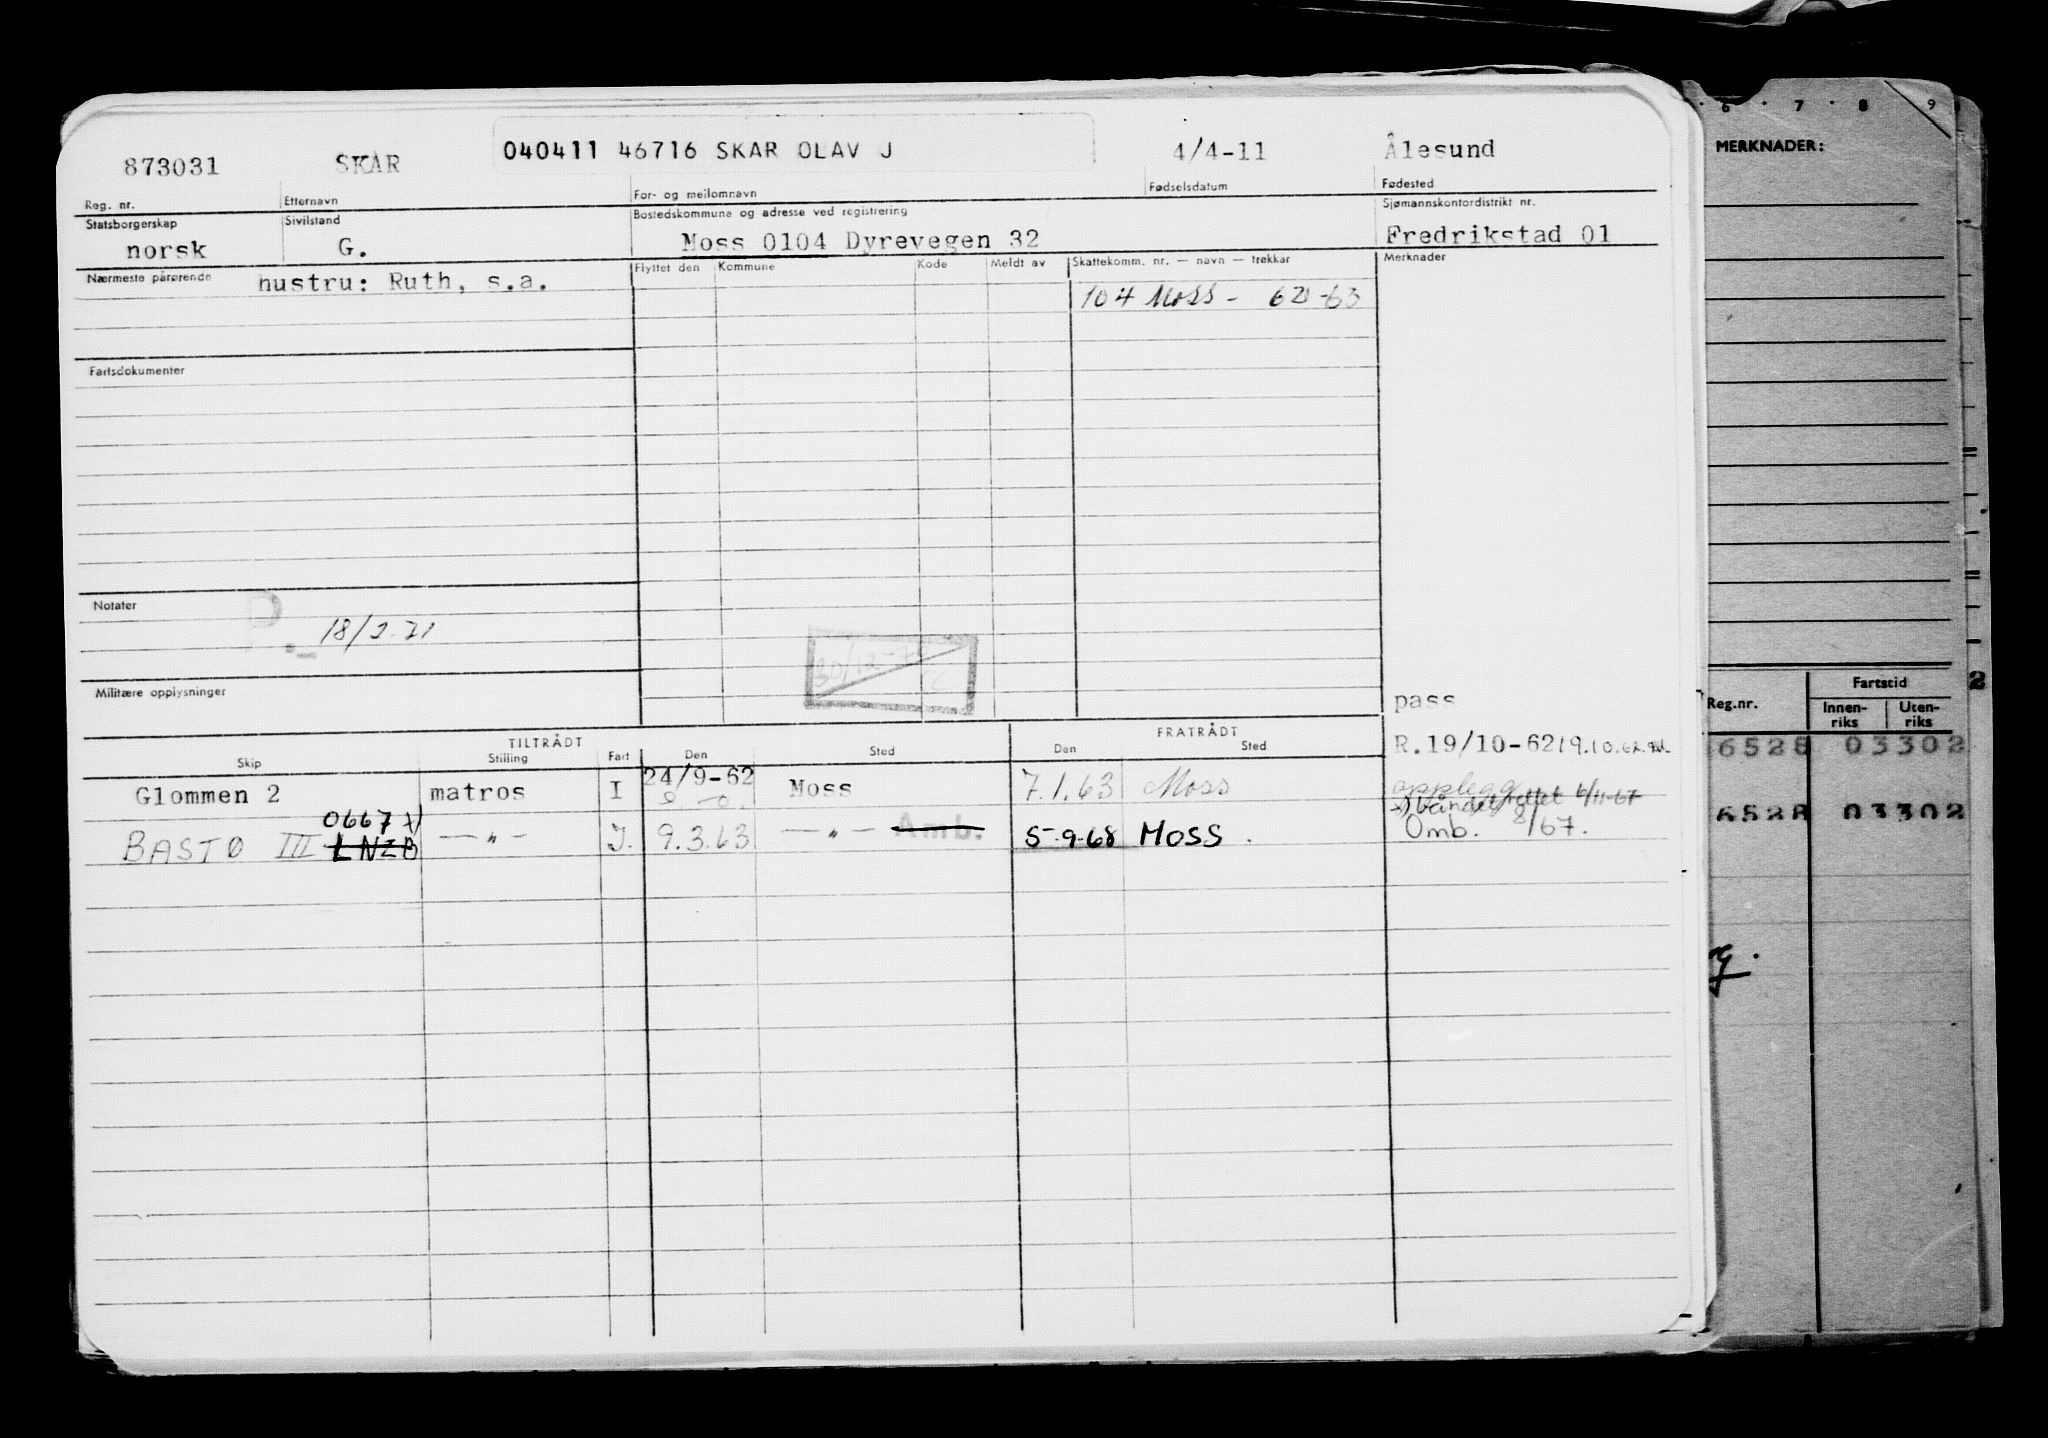 873031 SKAR 040411 46716 SKAR OLAV J 4/4-11 Ålesund
Reg. nr. Etternavn For- og mellomnavn Fødselsdatum Fødested
Statsborgerskap Sivilstand Bostedskommune og adresse ved registrering Sjømannskontordistrikt nr.
norsk G. Moss 0104 Dyrevegen 32 Fredrikstad 01
Nærmeste pårørende hustru: Ruth, s.a. Flyttet den Kommune Kode Meldt av Skattekomm. nr. — navn — trekkår Merknader
104 Moss -
Fartsdokumenter
Notater
18/2.71
30/12-70
Militære opplysninger
pass
TILTRÅDT FRATRÅDT
Skip Stilling Fart Den Sted Den Sted R.19/10-62
Glommen 2 matros I 24/9-62 Moss 7.1.63 Moss opplegg
0667 x)
BASTØ III LNZB — " — I. 9.3.63 — " — Amb. 5-9-68 MOSS. Omb. 8/67.
6 7 8 9
MERKNADER:
2
Reg.nr. Fartstid
Innen-riks Uten-riks
6528 03302
6528 03302